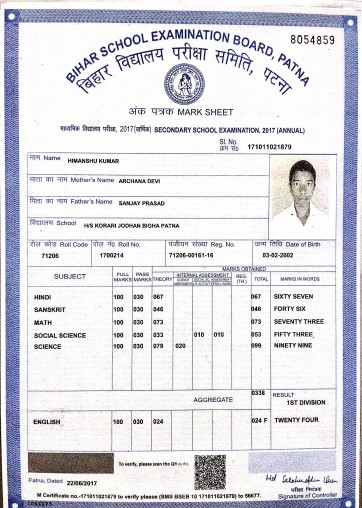 8054859
BIHAR SCHOOL EXAMINATION BOARD, PATNA
बिहार विद्यालय परीक्षा समिति, पटना
अंक पत्रक MARK SHEET
माध्यमिक विद्यालय परीक्षा, 2017(वार्षिक) SECONDARY SCHOOL EXAMINATION, 2017 (ANNUAL)
Sl. No.
क्रम सं० 171011021879
नाम Name HIMANSHU KUMAR
माता का नाम Mother's Name ARCHANA DEVI
पिता का नाम Father's Name SANJAY PRASAD
विद्यालय School H/S KORARI JODHAN BIGHA PATNA
रोल कोड Roll Code रोल नं० Roll No. पंजीयन संख्या Reg. No. जन्म तिथि Date of Birth
71206 1700214 71206-00161-16 03-02-2002
MARKS OBTAINED
SUBJECT FULL MARKS PASS MARKS THEORY INTERNAL ASSESSMENT REG. (TH.) TOTAL MARKS IN WORDS
HINDI 100 030 067 067 SIXTY SEVEN
SANSKRIT 100 030 046 046 FORTY SIX
MATH 100 030 073 073 SEVENTY THREE
SOCIAL SCIENCE 100 030 033 010 010 053 FIFTY THREE
SCIENCE 100 030 079 020 099 NINETY NINE
AGGREGATE 0338 RESULT
1ST DIVISION
ENGLISH 100 030 024 024 F TWENTY FOUR
To verify, please scan the QR code.
Patna, Dated 22/06/2017
Signature of Controller
M Certificate no.-171011021879 to verify please (SMS BSEB 10 171011021879) to 56677.